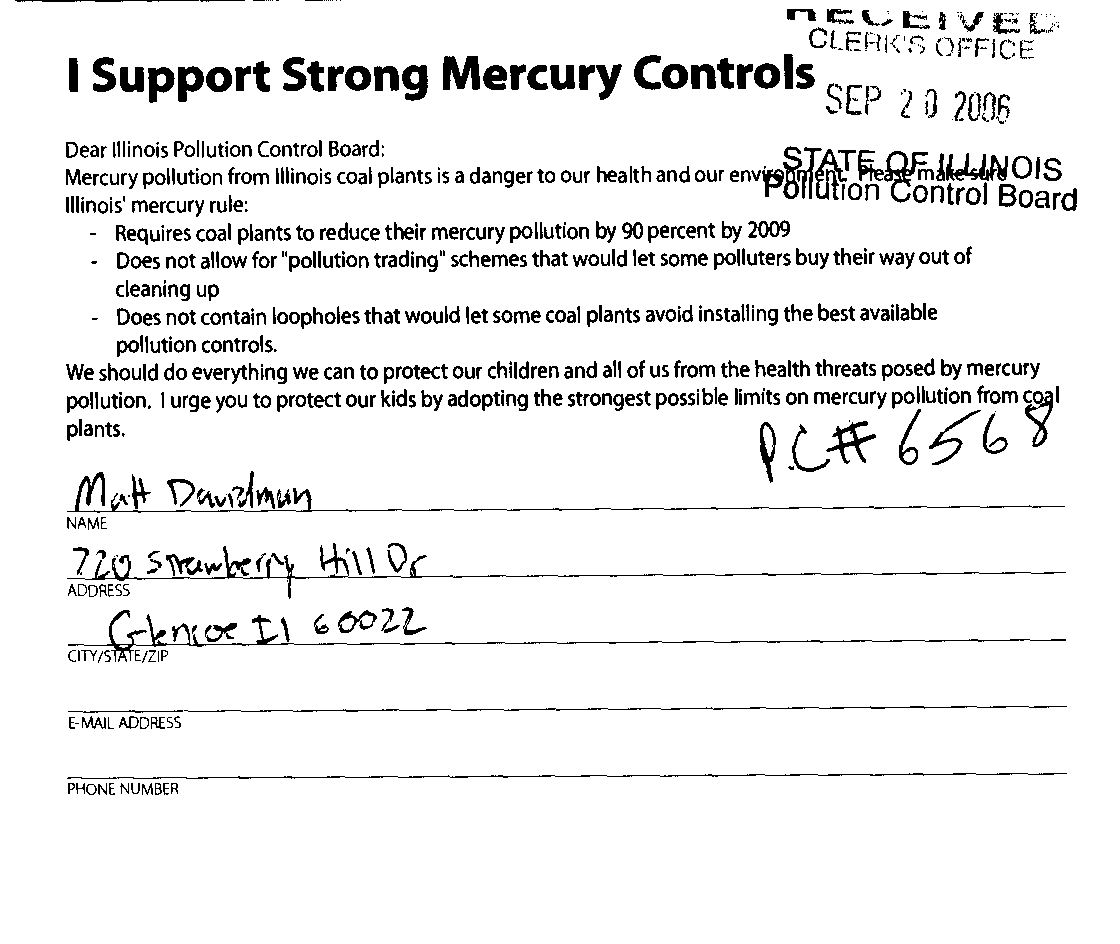 RECEIVED
CLERK'S OFFICE
I Support Strong Mercury Controls
SEP 20 2006
STATE OF ILLINOIS
Pollution Control Board
Dear Illinois Pollution Control Board:
Mercury pollution from Illinois coal plants is a danger to our health and our environment. Please make sure
Illinois' mercury rule:
- Requires coal plants to reduce their mercury pollution by 90 percent by 2009
- Does not allow for "pollution trading" schemes that would let some polluters buy their way out of
cleaning up
- Does not contain loopholes that would let some coal plants avoid installing the best available
pollution controls.
We should do everything we can to protect our children and all of us from the health threats posed by mercury
pollution. I urge you to protect our kids by adopting the strongest possible limits on mercury pollution from coal
plants.
P.C# 6568
Matt
NAME
720 Strawberry Hill Dr
ADDRESS
Glencoe Il 60022
CITY/STATE/ZIP
E-MAIL ADDRESS
PHONE NUMBER